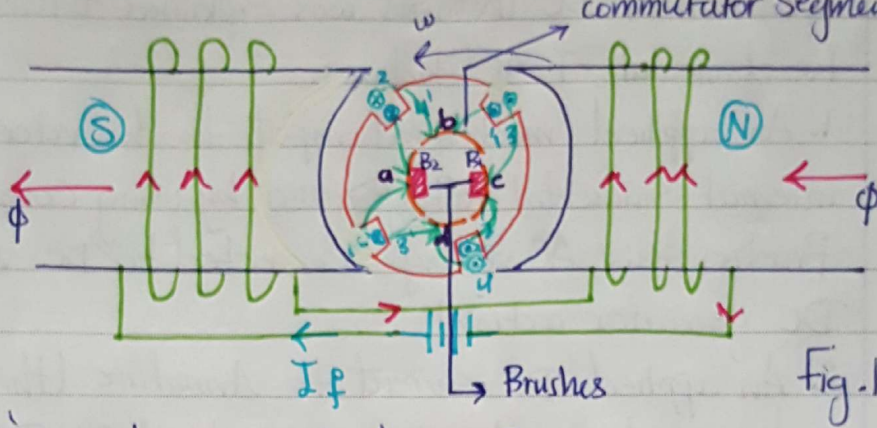 commutator Segme
ω
S
N
2
1'
b
4
3
a
B2
B1
c
φ
φ
1
3'
d
4
If
Brushes
Fig.1